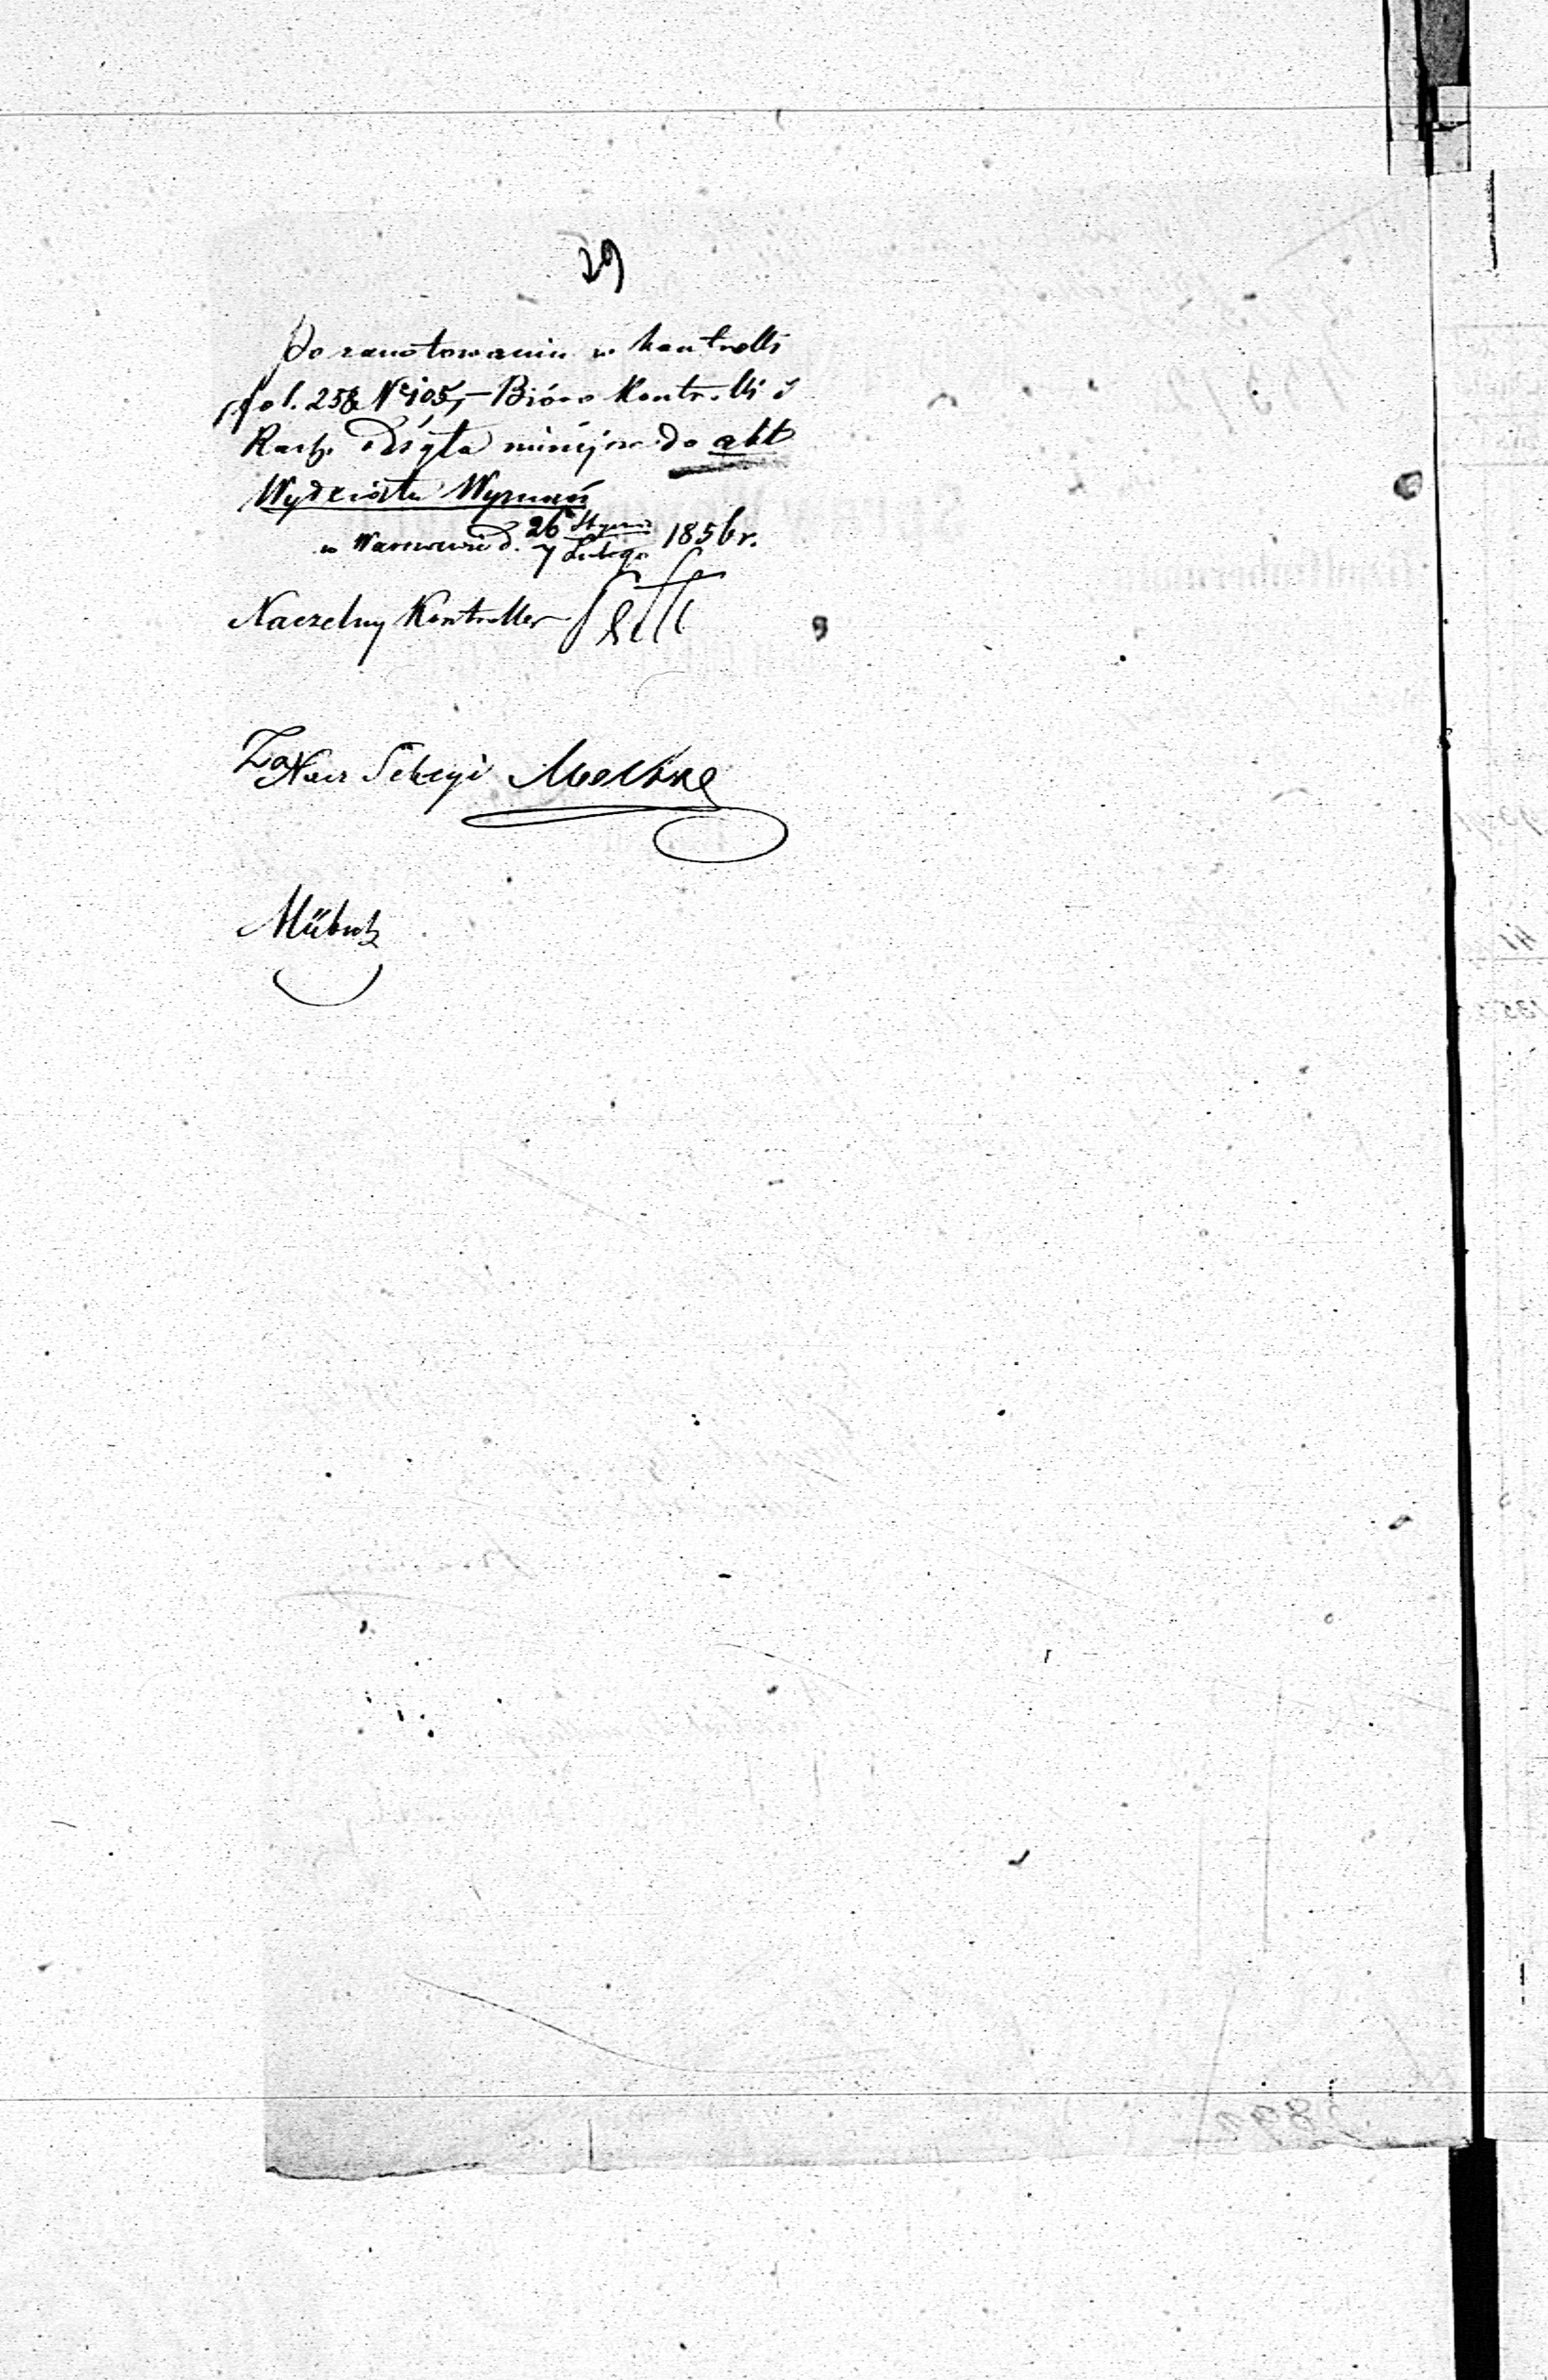 29
Po zanotowaniu w kontrolli
fol. 258 Nr 105, – Bióro Kontrolli i
Rach. odsyła niniejsze do akt
Wydziału Wyznań
w Warszawie d. 26 Stycznia / 7 Lutego 1856 r.
Naczelny Kontroller
Za Nacz Sekcyi